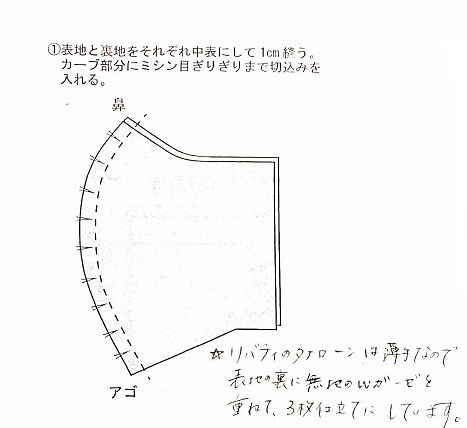 ①表地と裏地をそれぞれ中表にして1cm縫う。
カーブ部分にミシン目ぎりぎりまで切込みを
入れる。
鼻
アゴ
☆リバティのタナローンは薄手なので
表地の裏に無地のWガーゼを
重ねて、3枚仕立てにしています。